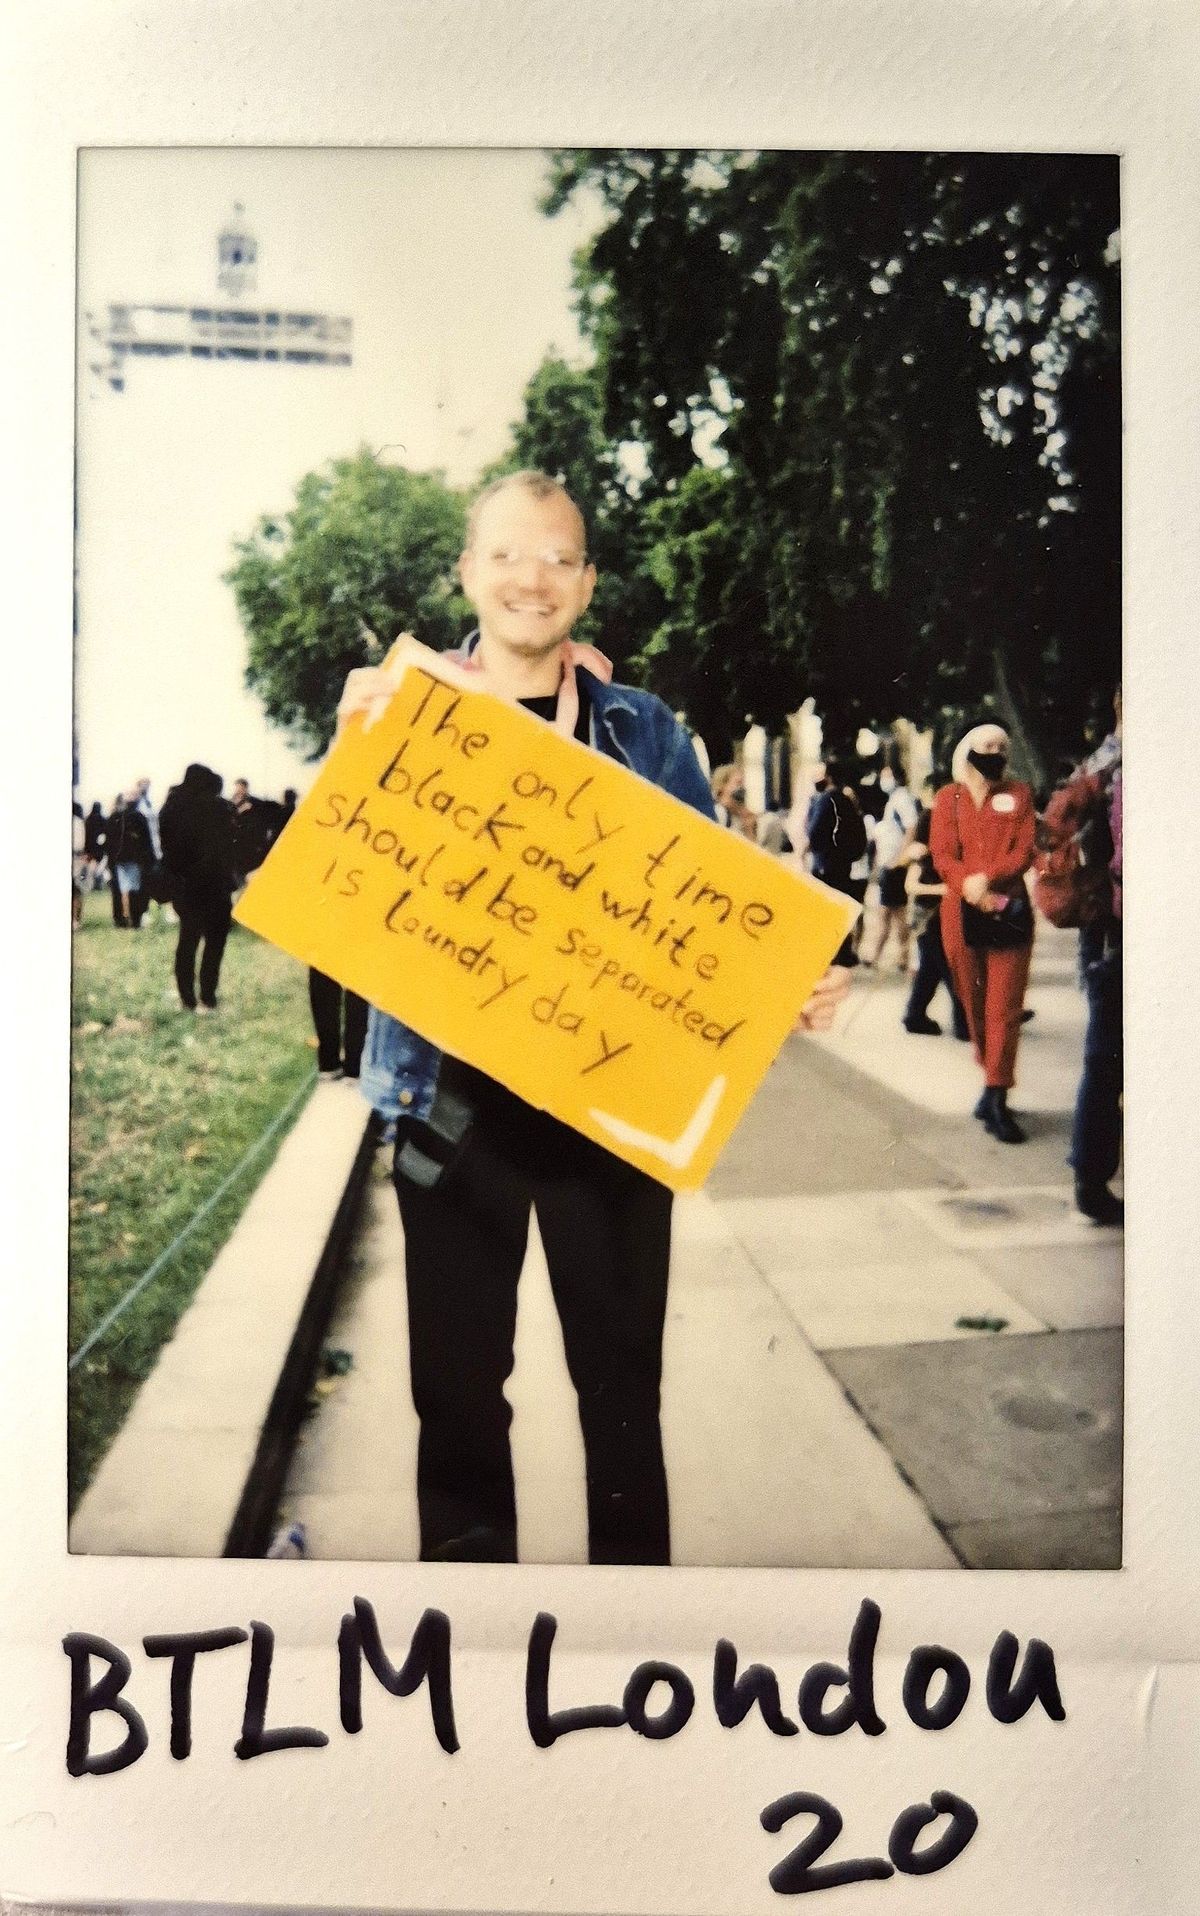 The only time
black and white
should be separated
is laundry day
BTLM London
20